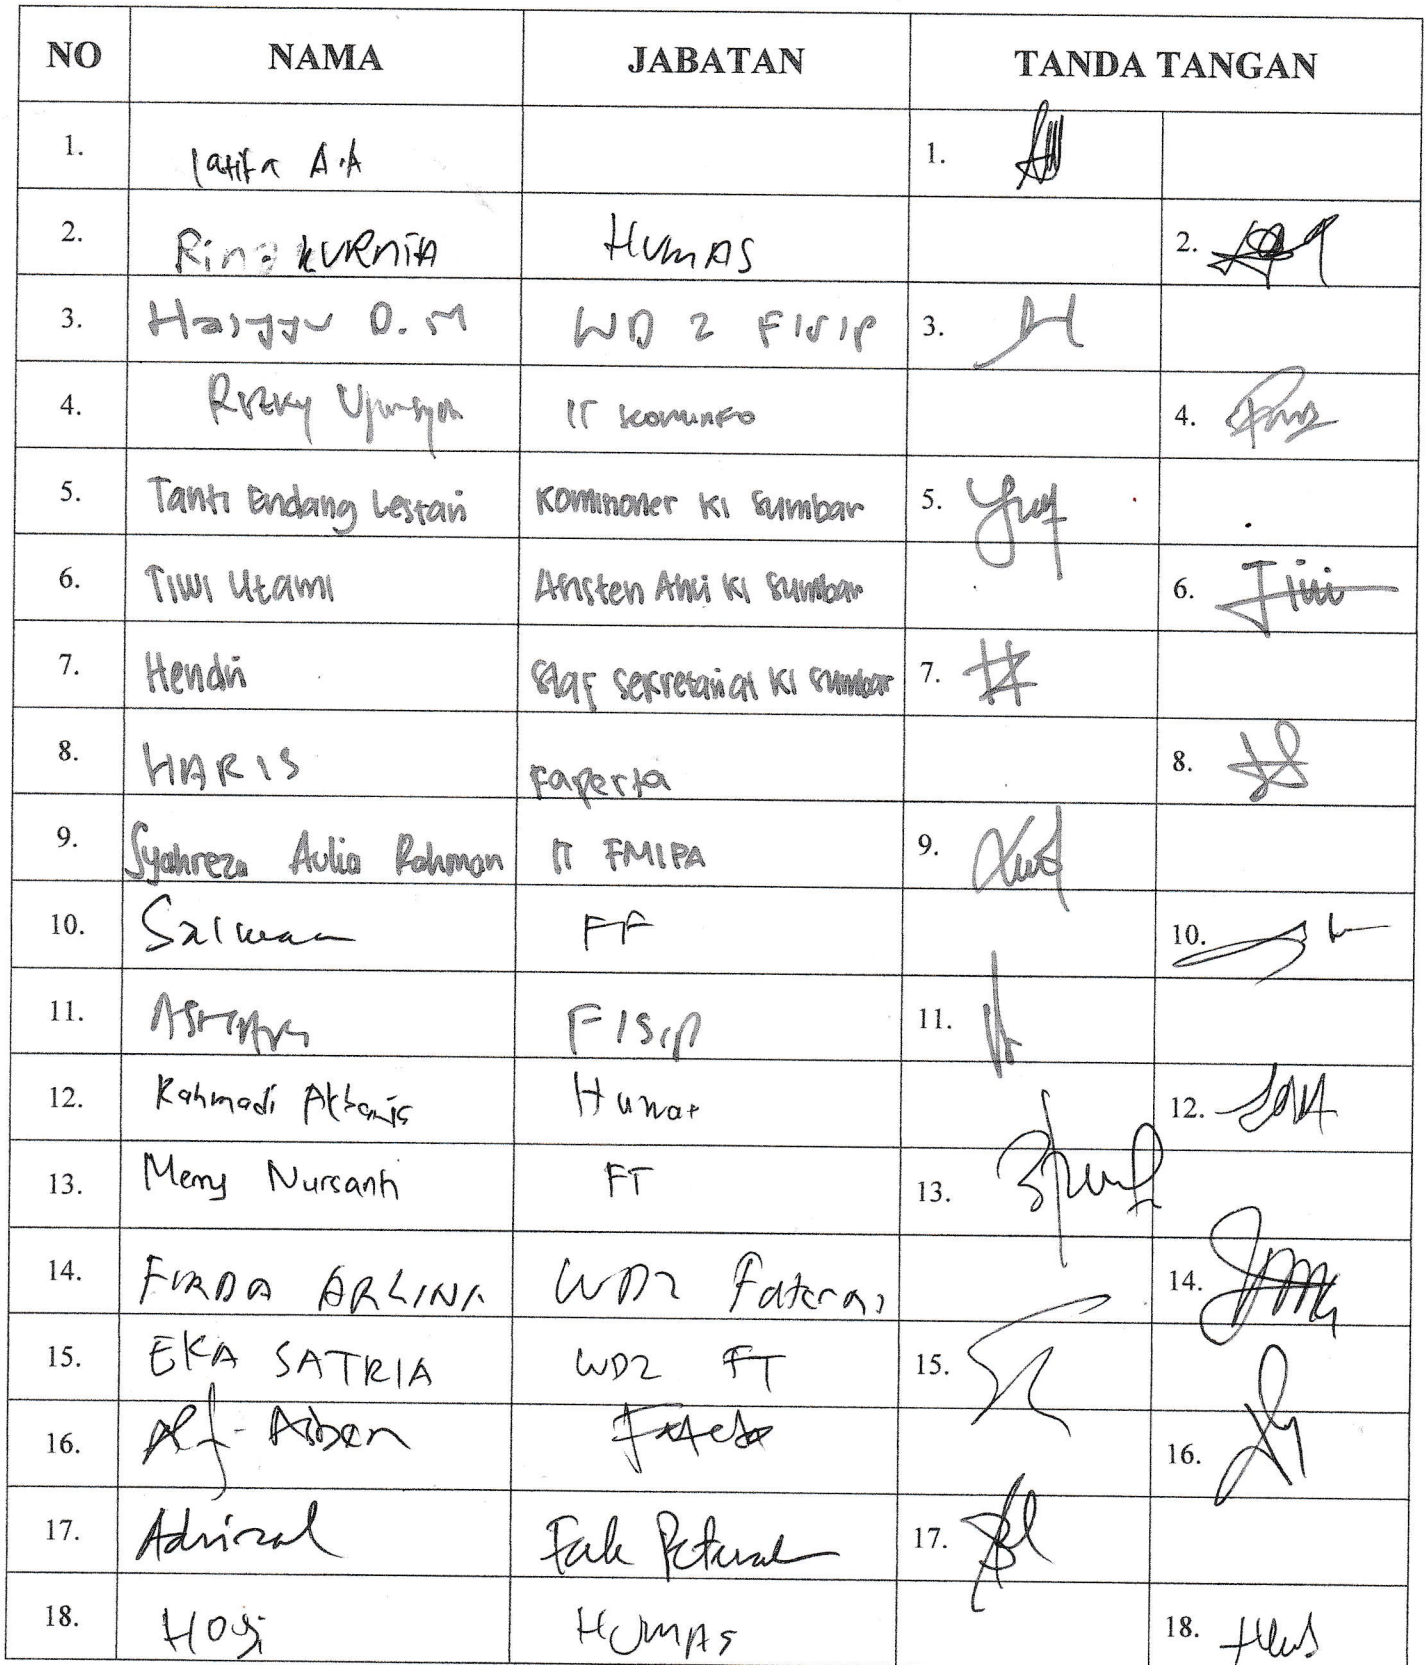 NO NAMA JABATAN TANDA TANGAN
1. Latifa A.A 1.
2. Rina KURNIA HUMAS 2.
3. D.M WD 2 FISIP 3.
4. Rizky IT Kominfo 4.
5. Tanti Endang Lestari Komisioner KI Sumbar 5.
6. Tiwi Utami Asisten Ahli KI Sumbar 6.
7. Hendri Staf Sekretariat KI Sumbar 7.
8. HARIS Faperta 8.
9. Syahreza Aulia Rahman IT FMIPA 9.
10. Salman FF 10.
11. FISIP 11.
12. Rahmadi Humas 12.
13. Merry Nursanti FT 13.
14. FIRDA ARLINA WD2 Fateta 14.
15. EKA SATRIA WD2 FT 15.
16. Alf. Asben Fateta 16.
17. Adrizal Fak Peternakan 17.
18. HOGI HUMAS 18.